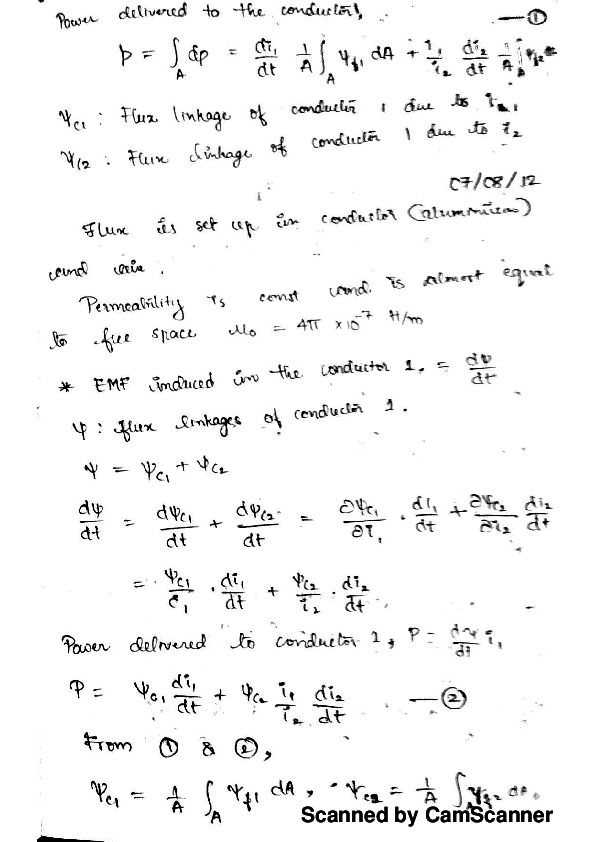 Power delivered to the conductor 1, — ①
p = ∫_A dp = di₁/dt 1/A ∫_A Ψf1 dA + i₁/i₂ di₂/dt 1/A ∫_A Ψf2
Ψc1 : Flux linkage of conductor 1 due to i₁
Ψc2 : Flux linkage of conductor 1 due to i₂
07/08/12
Flux is set up in conductor (aluminium)
and air.
Permeability is const and is almost equal
to free space μ₀ = 4π × 10⁻⁷ H/m
* EMF induced in the conductor 1, = dψ/dt
ψ : flux linkages of conductor 1.
ψ = ψc1 + ψc2
dψ/dt = dψc1/dt + dψc2/dt = ∂ψc1/∂i₁ · di₁/dt + ∂ψc2/∂i₂ di₂/dt
= ψc1/i₁ · di₁/dt + ψc2/i₂ · di₂/dt
Power delivered to conductor 1, P = dψ/dt i₁
P = ψc1 di₁/dt + ψc2 i₁/i₂ di₂/dt — ②
From ① & ②,
Ψc1 = 1/A ∫_A Ψf1 dA, Ψc2 = 1/A ∫_A Ψf2 dA.
Scanned by CamScanner